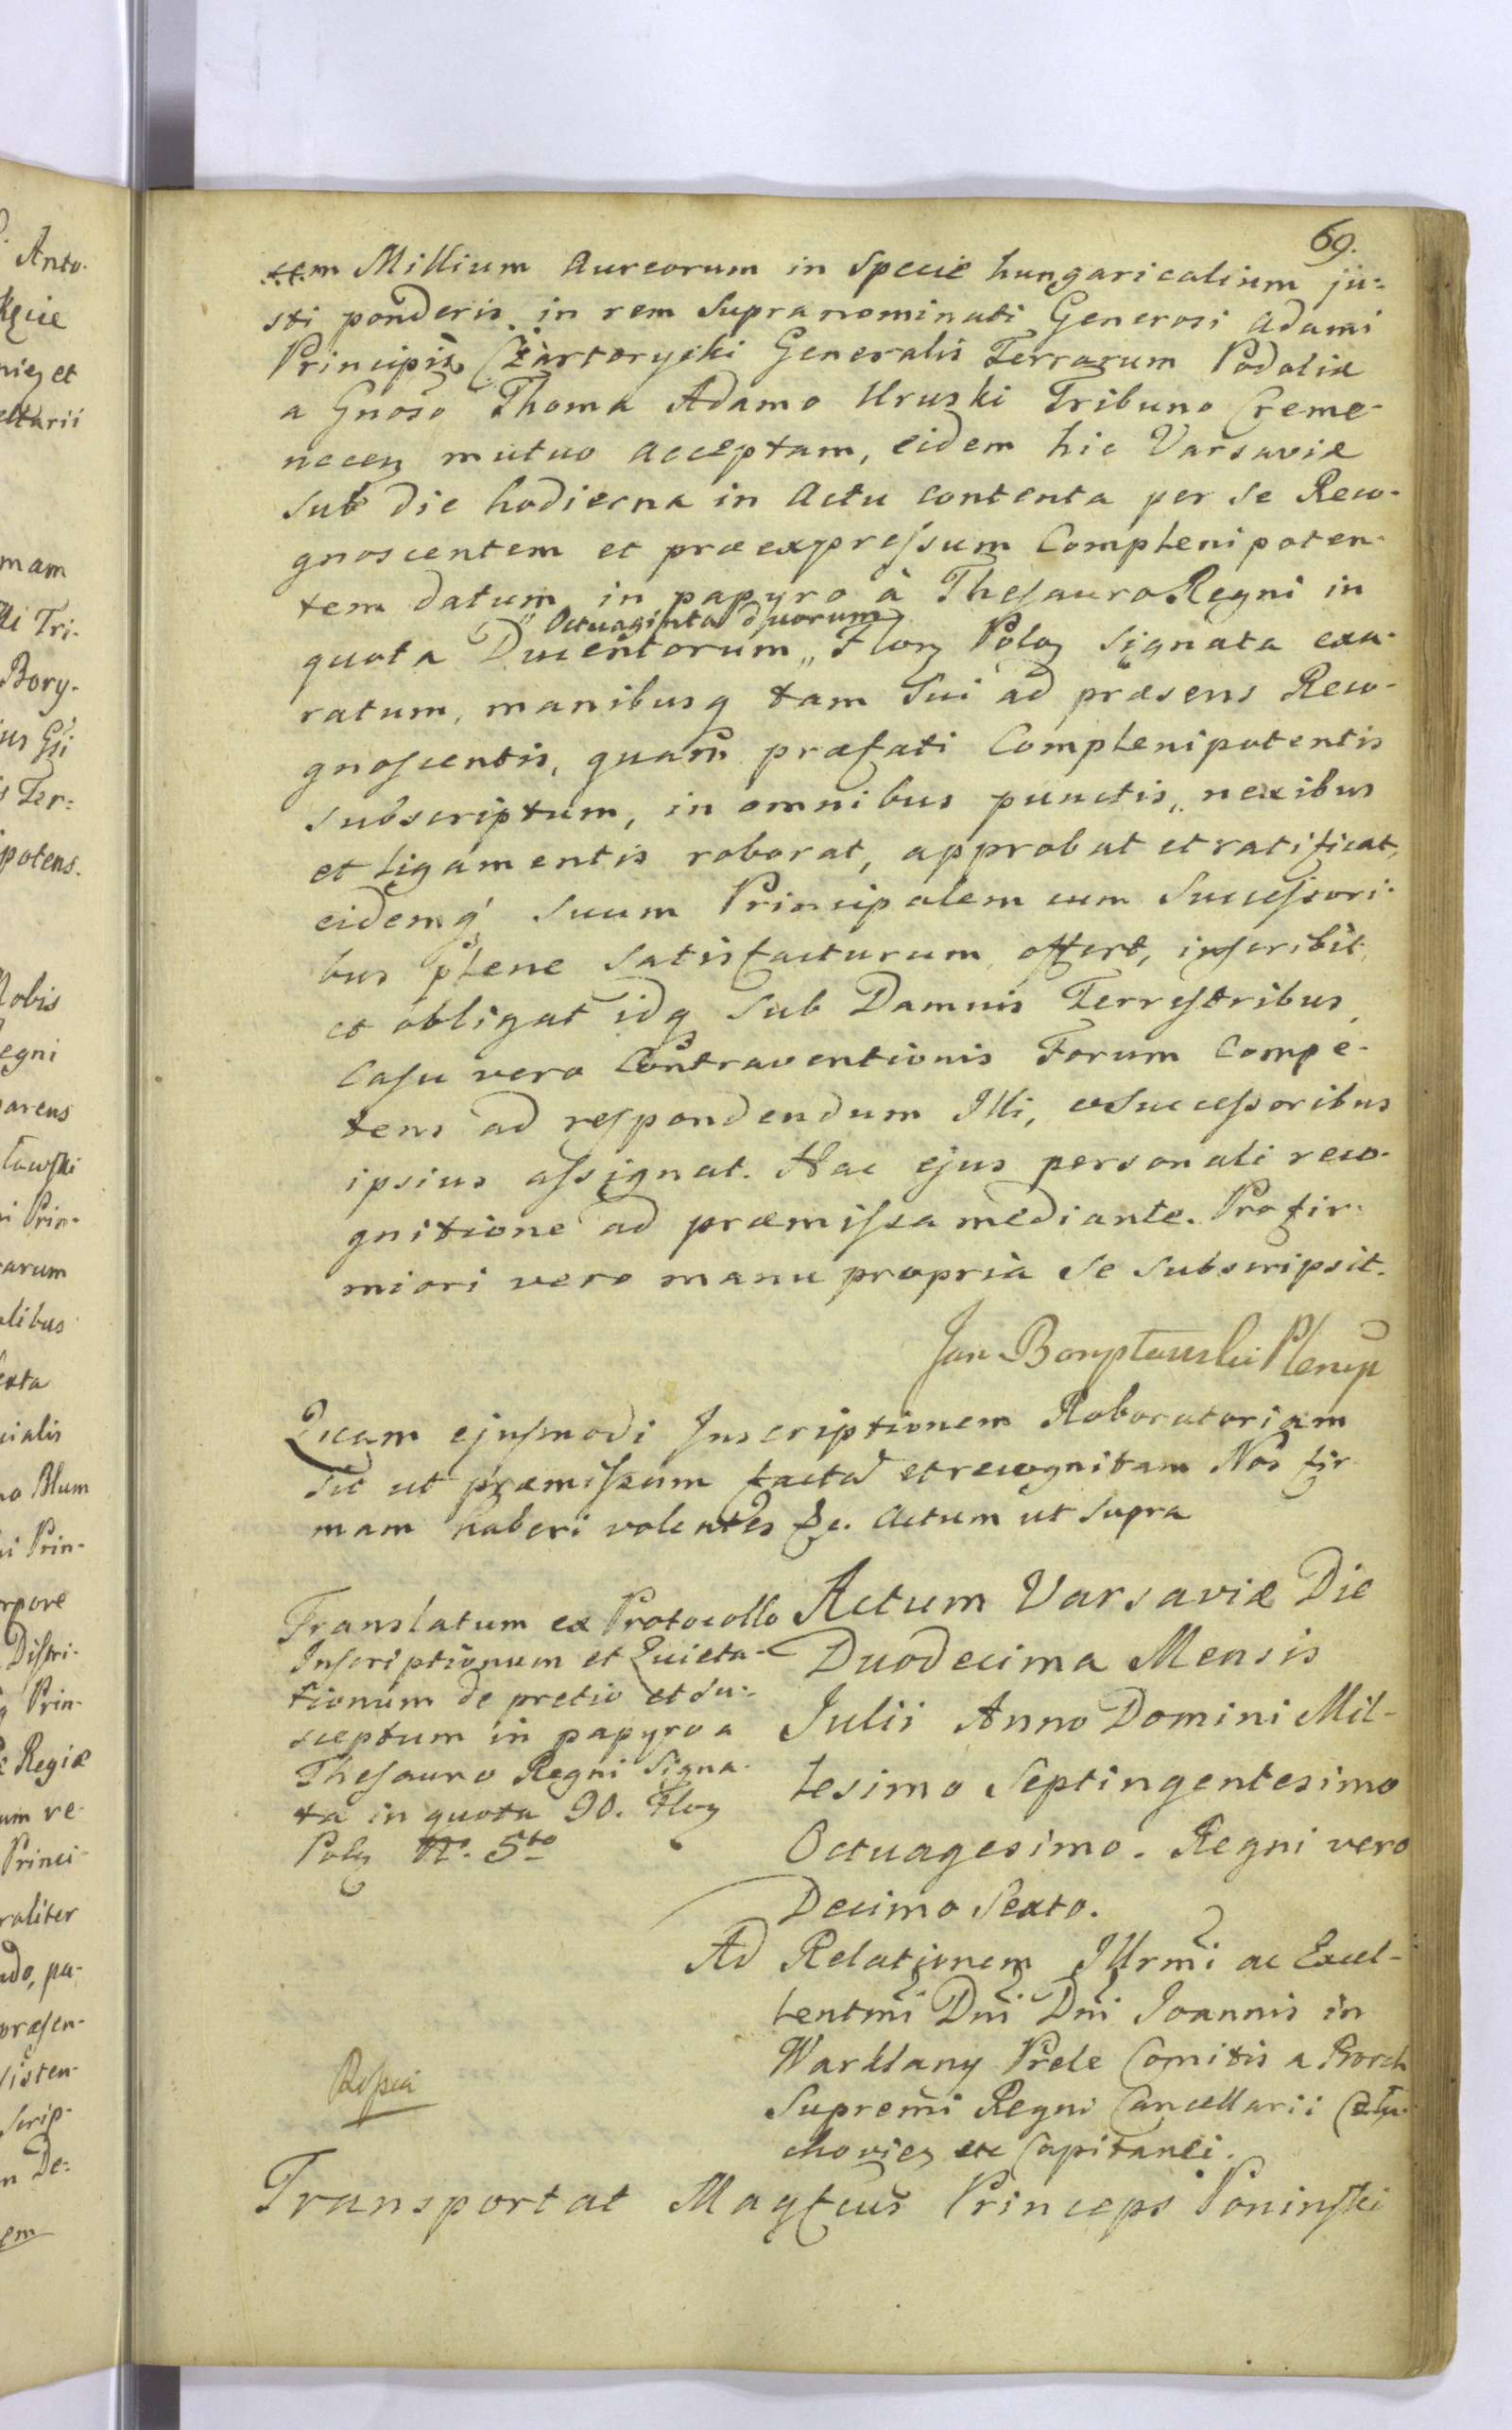 69.
tem Millium Aureorum in Specie hungaricalium ju:
sti ponderis in rem Supranominati Generosi Adami
Principis Czartoryski Generalis Terrarum Podoliæ
a Gnoso Thoma Adamo Uruski Tribuno Creme-
necen mutuo acceptam, eidem hic Varsaviæ
sub die hodierna in Actu contenta per se Reco-
gnoscentem et præexpressum Complenipoten-
tem datum in papyro à Thesauro Regni in
Octuaginta duorum
quota Ducentorum „ Flor Polo signata exa-
ratum, manibusq tam Sui ad præsens Reco-
gnoscentis, quam præfati Complenipotentis
subscriptum, in omnibus punctis, nexibus
et ligamentis roborat, approbat et ratificat,
eidemq suum Principalem cum Successori-
bus plene satisfacturum offert, inscribit
et obligat idq sub Damnis Terrestribus,
Casu vero Contraventionis Forum Compe-
tens ad respondendum Illi, e Successoribus
ipsius assignat. Hac ejus personali reco-
gnitione ad præmissa mediante. Pro fir-
miori vero manu propria se subscripsit.
Jan Borysławski Plenip
Quam ejusmodi Inscriptionem Roboratoriam
sic ut præmissum facta et recognitam Nos fir
mam haberi volentes &c. Actum ut supra
Translatum ex Protocollo
Inscriptionum et Quieta-
tionum de pretio et su:
sceptum in papyro a
Thesauro Regni signa-
ta in quota 90. Flor
Pol No. 5to
Actum Varsaviæ Die
Duodecima Mensis
Julii Anno Domini Mil-
lesimo Septingentesimo
Octuagesimo. Regni vero
Decimo Sexto.
Ad Relationem Illrmi ac Excel-
lentmi Dni Dni Joannis in
Warklany Prele Comitis a Borch
Supremi Regni Cancellarii
etc Capitanei.
Transportat Magfcus Princeps Poninski